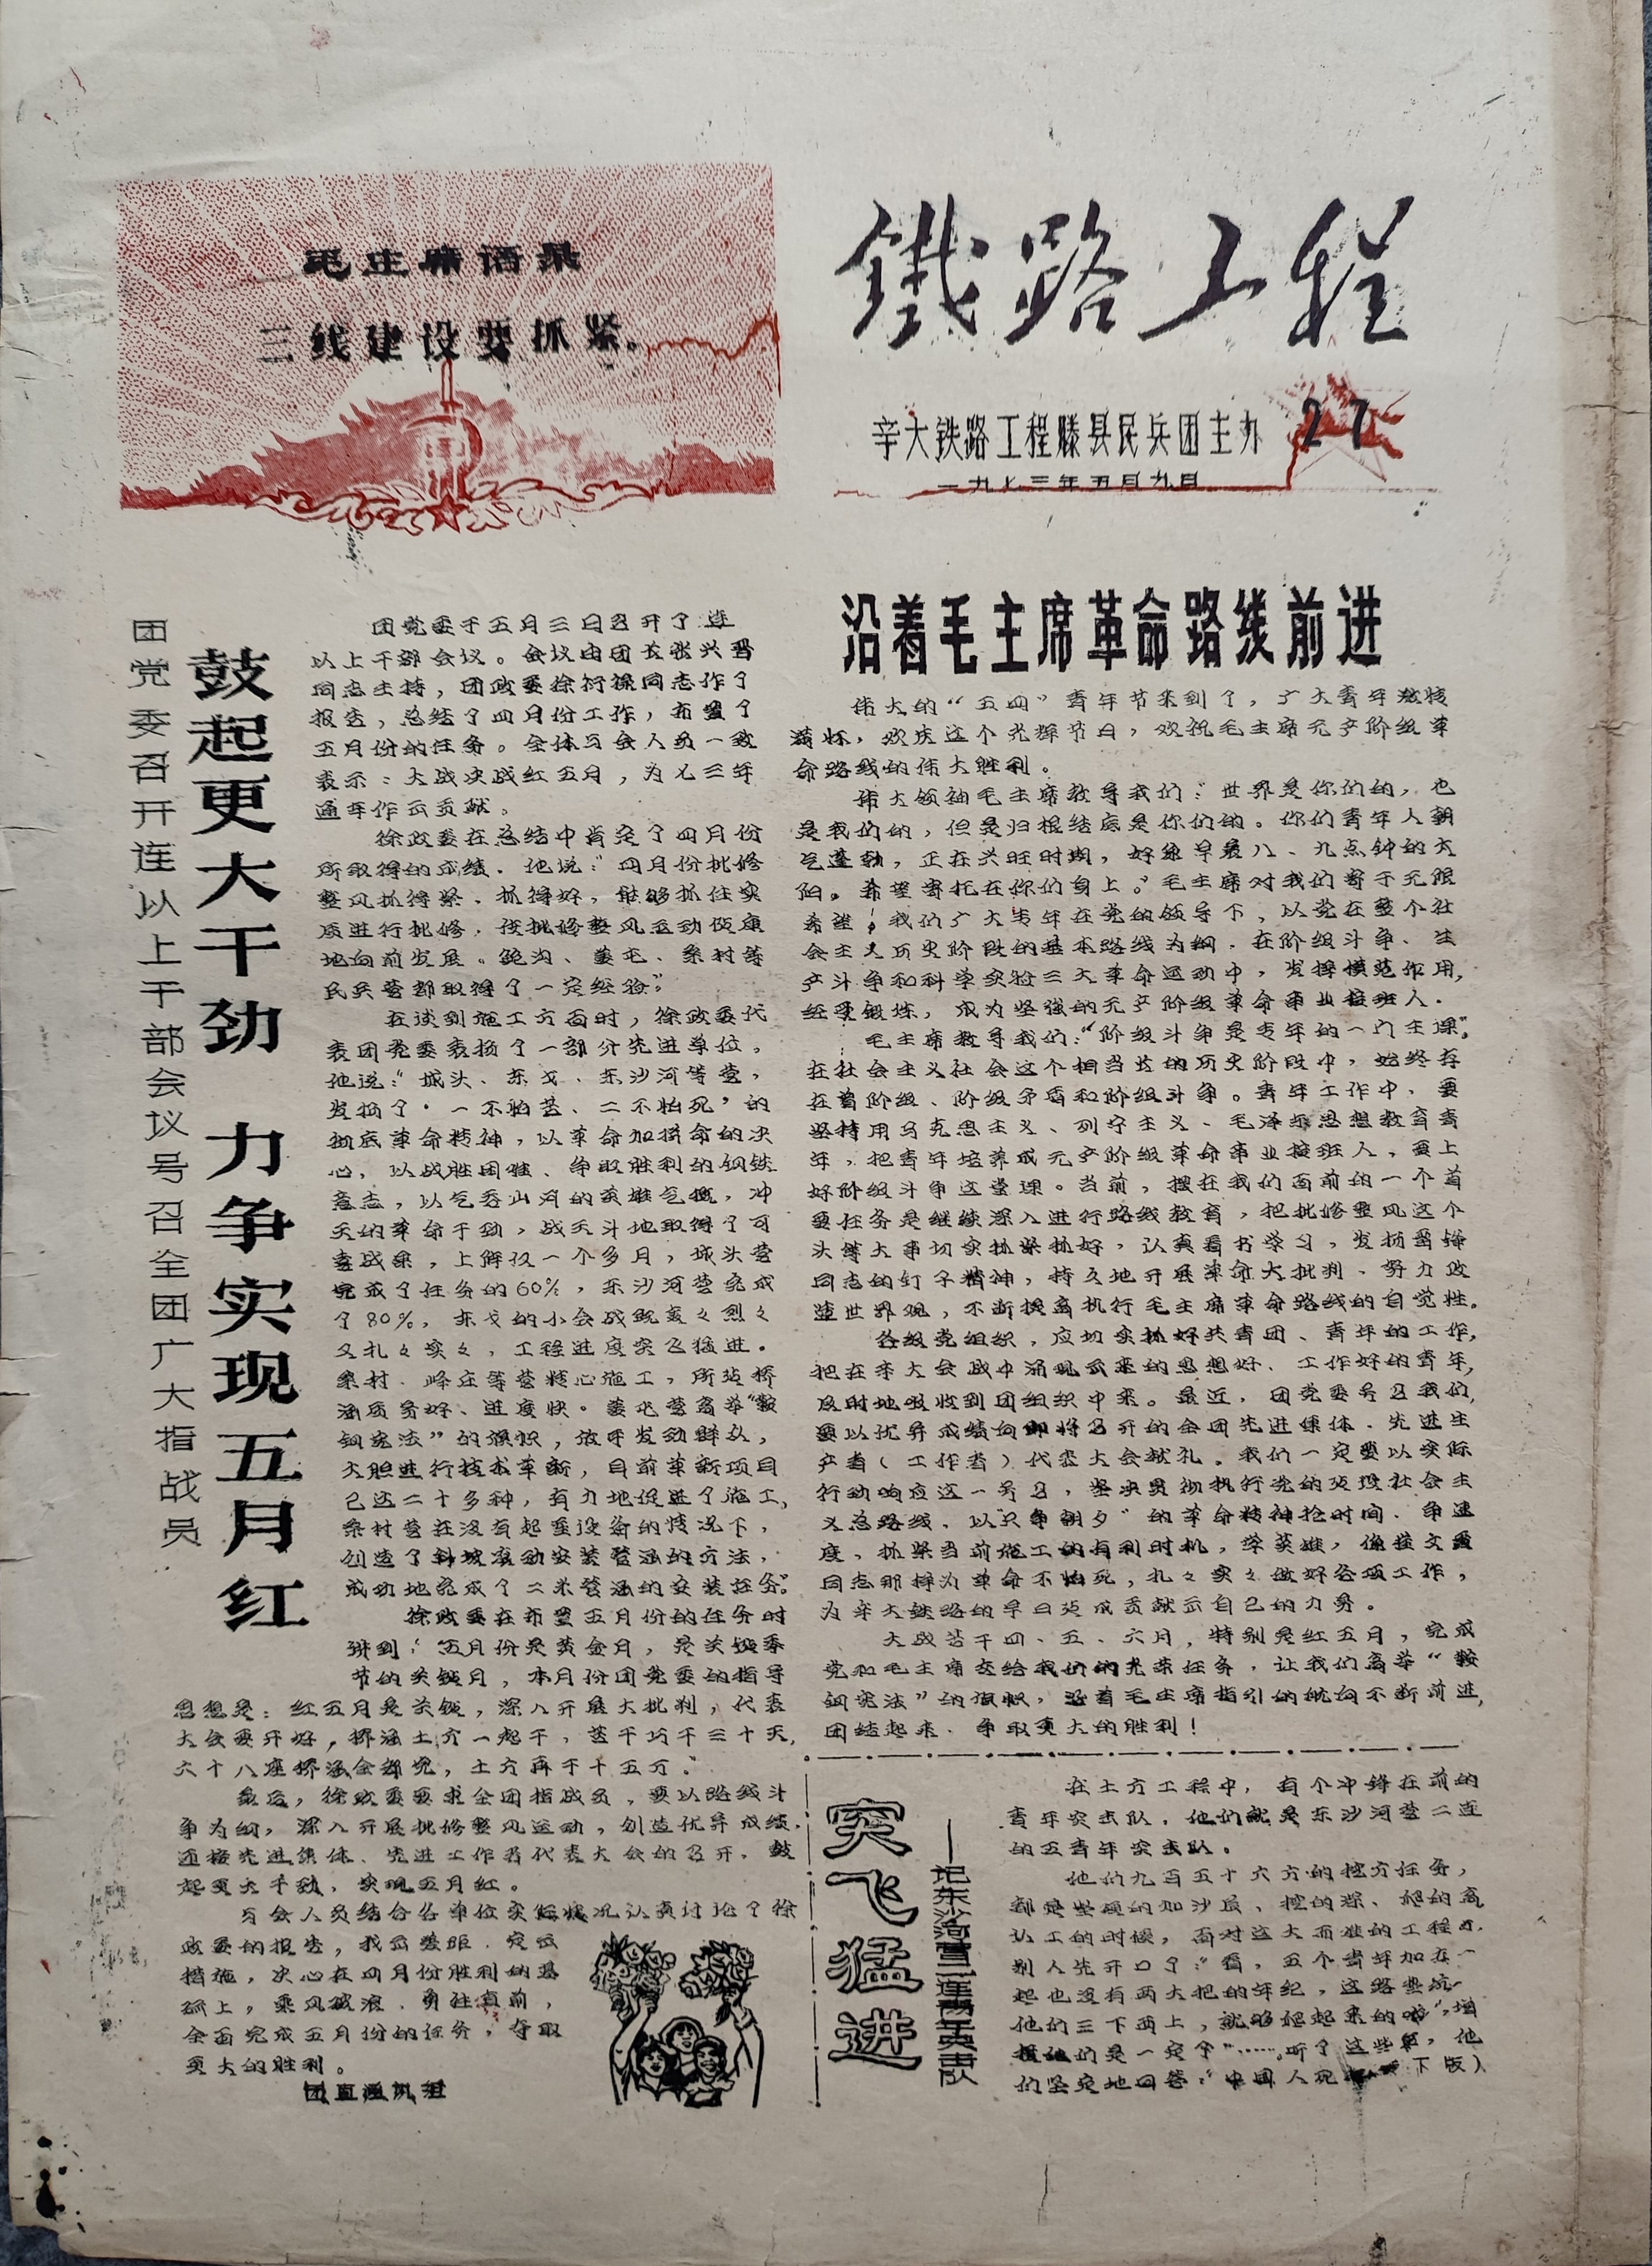 毛主席语录
三线建设要抓紧。
鐵路工程
辛大铁路工程滕县民兵团主办
27
一九七三年五月九日
团党委召开连以上干部会议号召全团广大指战员
鼓起更大干劲 力争实现五月红
团党委于五月三日召开了连
以上干部会议。会议由团长张兴晋
同志主持，团政委徐衍禄同志作了
报告，总结了四月份工作，布置了
五月份的任务。全体与会人员一致
表示：大战决战红五月，为七三年
通车作出贡献。
徐政委在总结中肯定了四月份
所取得的成绩。他说：“四月份批修
整风抓得紧、抓得好，能够抓住实
质进行批修，使批修整风运动健康
地向前发展。鲍沟、姜屯、柴村等
民兵营都取得了一定经验。”
在谈到施工方面时，徐政委代
表团党委表扬了一部分先进单位。
他说：“城头、东戈、东沙河等营，
发扬了‘一不怕苦、二不怕死’的
彻底革命精神，以革命加拚命的决
心，以战胜困难、争取胜利的钢铁
意志，以气吞山河的英雄气概，冲
天的革命干劲，战天斗地取得了可
喜战果，上阵仅一个多月，城头营
完成了任务的60%，东沙河营完成
了80%，东戈的小会战既轰々烈々
又扎々实々，工程进度突飞猛进。
柴村、峄庄等营精心施工，所筑桥
涵质量好、进度快。姜屯营高举“鞍
钢宪法”的旗帜，放手发动群众，
大胆进行技术革新，目前革新项目
已达二十多种，有力地促进了施工，
柴村营在没有起重设备的情况下，
创造了斜坡滚动安装管涵的方法，
成功地完成了二米管涵的安装任务。”
徐政委在布置五月份的任务时
讲到：“五月份是黄金月，是关键季
节的关键月，本月份团党委的指导
思想是：红五月是关键，深入开展大批判，代表
大会要开好，桥涵土方一起干，苦干巧干三十天，
六十八座桥涵全部完，土方再干十五万。”
最后，徐政委要求全团指战员，要以路线斗
争为纲，深入开展批修整风运动，创造优异成绩，
迎接先进集体、先进工作者代表大会的召开，鼓
起更大干劲，实现五月红。
与会人员结合各单位实际情况认真讨论了徐
政委的报告，找出差距，定出
措施，决心在四月份胜利的基
础上，乘风破浪，勇往直前，
全面完成五月份的任务，夺取
更大的胜利。
团直通讯组
沿着毛主席革命路线前进
伟大的“五四”青年节来到了，广大青年激情
满怀，欢庆这个光辉节日，欢祝毛主席无产阶级革
命路线的伟大胜利。
伟大领袖毛主席教导我们：“世界是你们的，也
是我们的，但是归根结底是你们的。你们青年人朝
气蓬勃，正在兴旺时期，好象早晨八、九点钟的太
阳。希望寄托在你们身上。”毛主席对我们寄于无限
希望！我们广大青年在党的领导下，以党在整个社
会主义历史阶段的基本路线为纲，在阶级斗争、生
产斗争和科学实验三大革命运动中，发挥模范作用，
经受锻炼，成为坚强的无产阶级革命事业接班人。
毛主席教导我们：“阶级斗争是青年的一门主课”。
在社会主义社会这个相当长的历史阶段中，始终存
在着阶级、阶级矛盾和阶级斗争。青年工作中，要
坚持用马克思主义、列宁主义、毛泽东思想教育青
年，把青年培养成无产阶级革命事业接班人，要上
好阶级斗争这堂课。当前，摆在我们面前的一个首
要任务是继续深入进行路线教育，把批修整风这个
头等大事切实抓紧抓好，认真看书学习，发扬雷锋
同志的钉子精神，持久地开展革命大批判，努力改
造世界观，不断提高执行毛主席革命路线的自觉性。
各级党组织，应切实抓好共青团、青年的工作，
把在辛大会战中涌现出来的思想好、工作好的青年，
及时地吸收到团组织中来。最近，团党委号召我们，
要以优异成绩向即将召开的全团先进集体、先进生
产者（工作者）代表大会献礼。我们一定要以实际
行动响应这一号召，坚决贯彻执行党的建设社会主
义总路线，以“只争朝夕”的革命精神抢时间、争速
度，抓紧当前施工的有利时机，学英雄，像
同志那样为革命不怕死，扎々实々做好各项工作，
为辛大铁路的早日建成贡献出自己的力量。
大战苦干四、五、六月，特别是红五月，完成
党和毛主席交给我们的光荣任务，让我们高举“鞍
钢宪法”的旗帜，沿着毛主席指引的航向不断前进，
团结起来，争取更大的胜利！
突飞猛进
——记东沙河营二连青年突击队
在土方工程中，有个冲锋在前的
青年突击队，他们就是东沙河营二连
的五青年突击队。
他们九百五十六方的挖方任务，
都是坚硬的加沙层，挖的深、爬的高，
认工的时候，面对这大而难的工程段，
别人先开口了：“看，五个青年加在一
起也没有两大把的年纪，这路堑坑，
他们三下两上，就够爬起来的啦”，
他们是一定了”……。听了这些，他
们坚定地回答：“中国人死
下版）